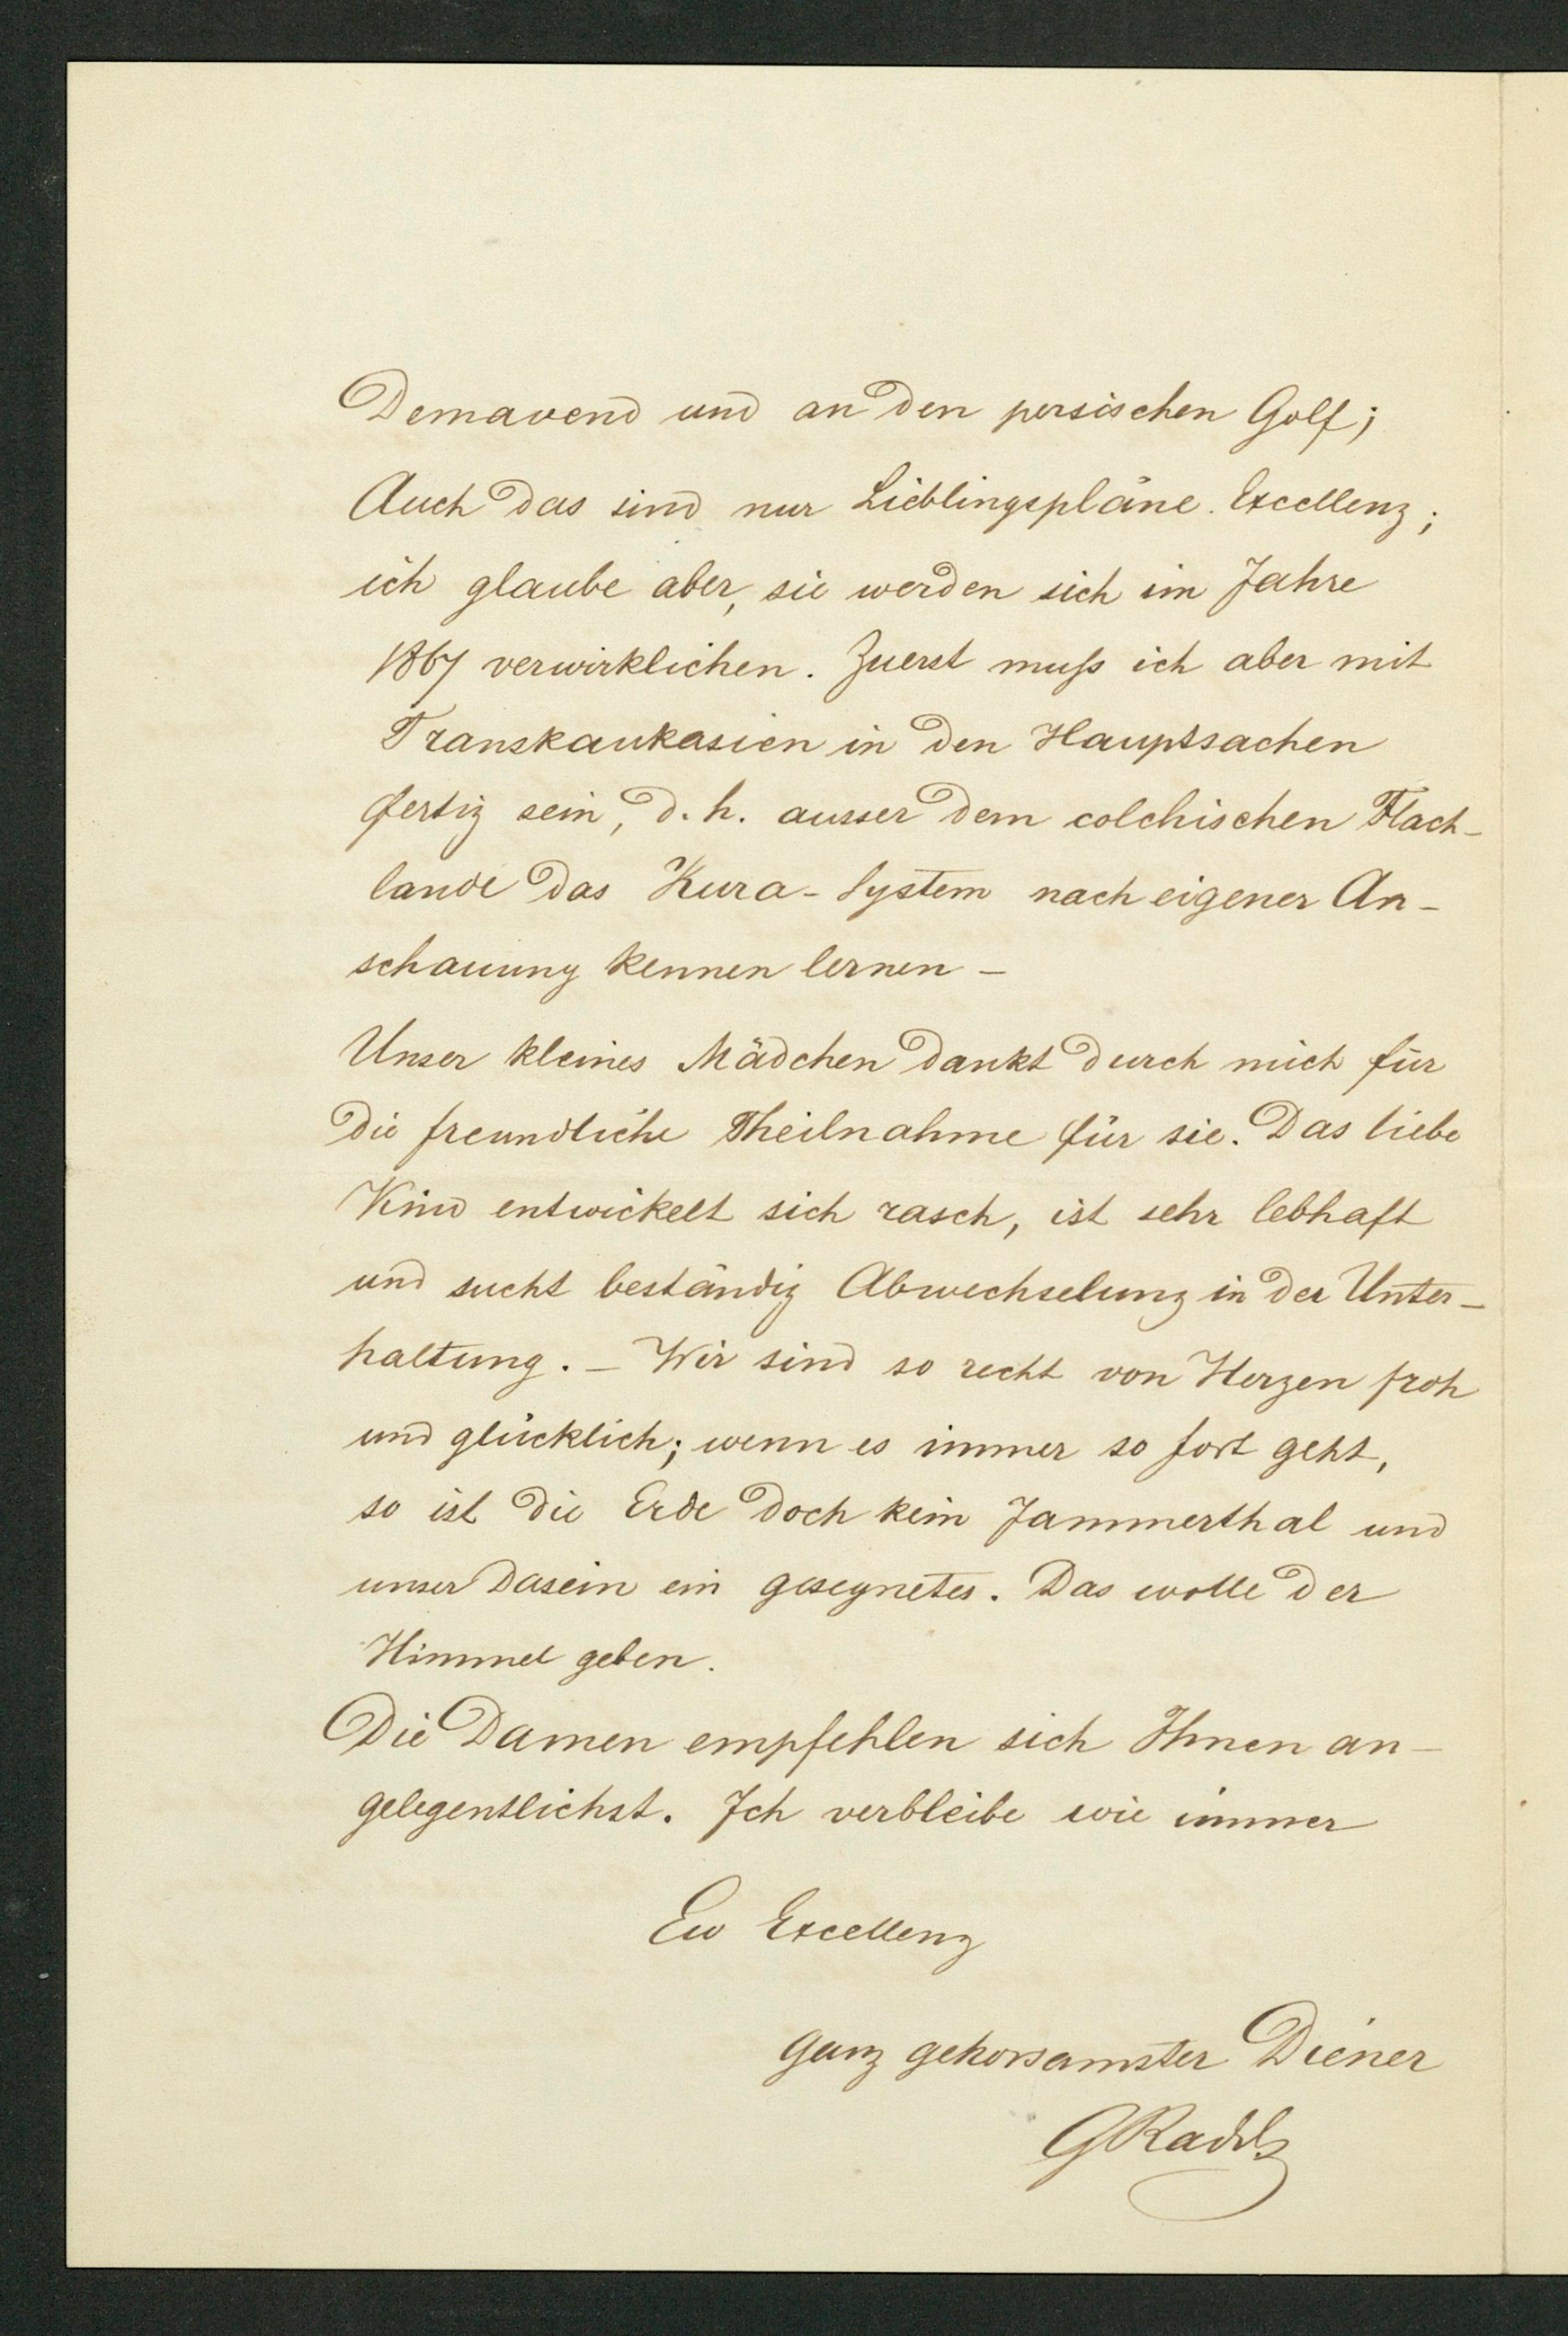 Demavend und an den persischen Golf;
Auch das sind nur Lieblingspläne. Excellenz;
ich glaube aber, sie werden sich im Jahre
1867 verwirklichen. Zuerst muſs ich aber mit
Transkaukasien in den Hauptsachen
fertig sein, d. h. ausser dem colchischen Flach-
lande das Kura-System nach eigener An-
schauung kennen lernen –
Unser kleines Mädchen dankt durch mich für
die freundliche Theilnahme für sie. Das liebe
Kind entwickelt sich rasch, ist sehr lebhaft
und sucht beständig Abwechselung in der Unter-
haltung. – Wir sind so recht von Herzen froh
und glücklich; wenn es immer so fort geht,
so ist die Erde doch kein Jammerthal und
unser Dasein ein gesegnetes. Das wolle der
Himmel geben.
Die Damen empfehlen sich Ihnen an-
gelegentlichst. Ich verbleibe wie immer
Ew Excellenz
ganz gehorsamster Diener
GRadde